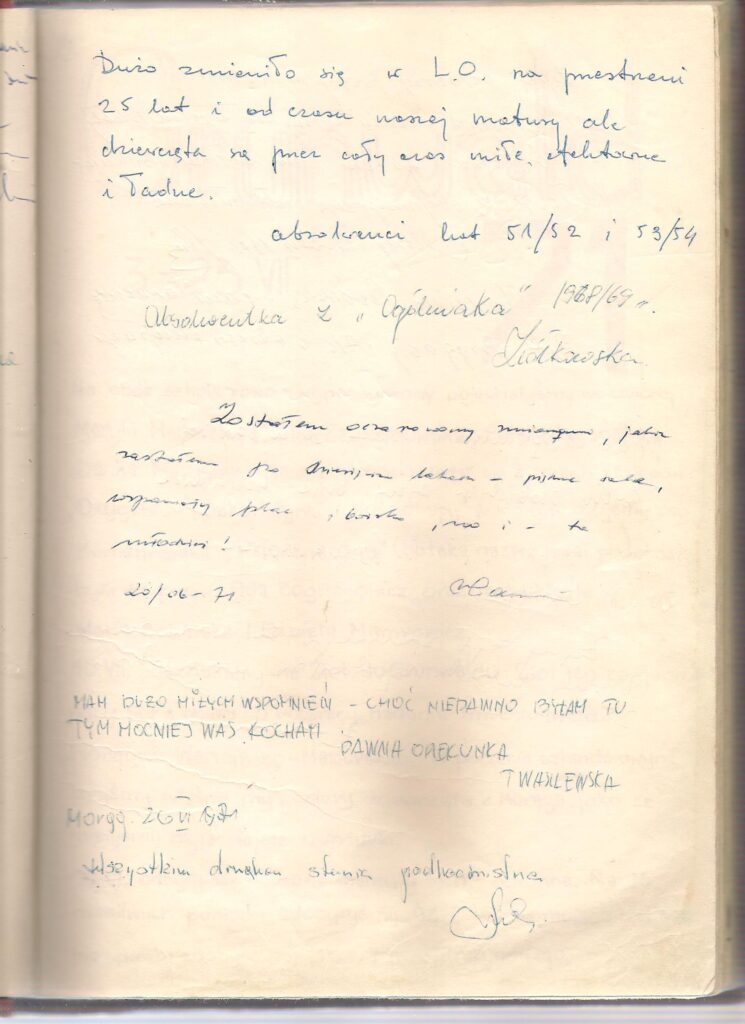 Dużo zmieniło się w L.O. na przestrzeni
25 lat i od czasu naszej matury ale
dziewczęta są przez cały czas miłe, efektowne
i ładne.
absolwenci lat 51/52 i 53/54
Absolwentka z „Ogólniaka" 1968/69 r.
Ziółkowska
Zostałem oczarowany zmianami, jakie
zastałem po latach – piękne sale,
wspaniały plac i boisko, no i – ta
młodzież!
20/06-71
MAM DUŻO MIŁYCH WSPOMNIEŃ – CHOĆ NIEDAWNO BYŁAM TU
TYM MOCNIEJ WAS KOCHAM
DAWNA OPIEKUNKA
T WASILEWSKA
Morąg. 26 VI 1971
Wszystkim druhom